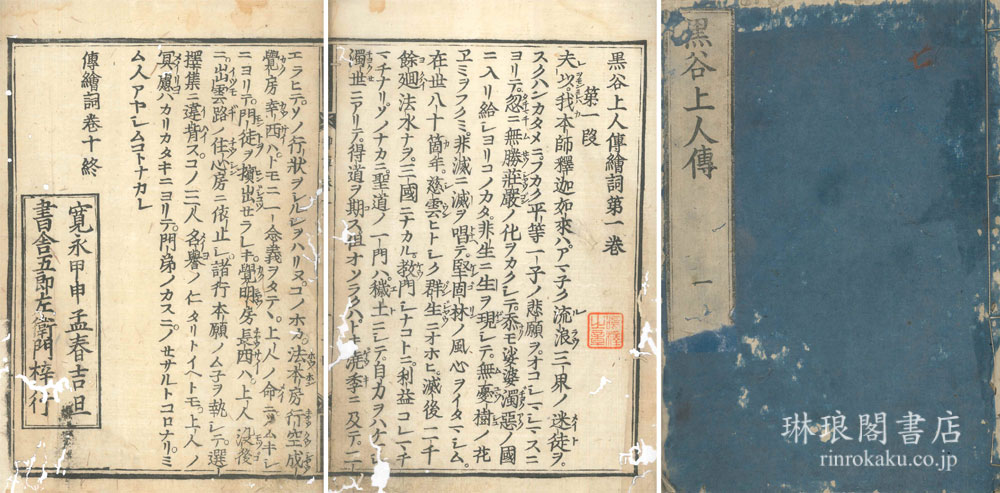 黒谷上人傳
一
黒谷上人傳繪詞第一卷
第一段
夫以。我本師釋迦如來ハ。アマ子ク流浪三界ノ迷徒ヲ。
スクハンカタメニ。フカク平等一子ノ悲願ヲ。オコシマシマスニ
ヨリテ。忽ニ無勝莊嚴ノ化ヲカクシテ。忝モ娑婆濁惡ノ國
ニ入リ給シヨリコノカタ。非生ニ生ヲ現シテ。無憂樹ノ花
ヱミヲフクミ。非滅ニ滅ヲ唱テ。堅固林ノ風心ヲイタマシム。
在世八十箇年。慈雲ヒトシク群生ニオホヒ。滅後二千
餘廻法水ナヲ。三國ニナカル。教門シナコトニ。利益コレマチ
マチナリ。ソノナカニ聖道ノ一門ハ。穢土ニシテ。自力ヲハケミ
濁世ニアリテ。得道ヲ期ス。但オソラクハ上モ澆季ニ及テ。二
エラヒテ。ソノ行狀ヲシルシヲハリヌ。コノホカ。法本房行空成
覺房幸西ハ。トモニ一念義ヲタテ丶。上人ノ命ニソムキシニ
ヨリテ。門徒ヲ擯出セラレキ。覺明房長西ハ。上人没後
ニ。出雲路ノ住心房ニ依止シ。諸行本願ノム子ヲ執シテ。選
擇集ニ違背ス。コノ三人名譽ノ仁タリトイヘトモ。上人ノ
冥慮ハカリカタキニヨリテ。門弟ノカスニノセサルトコロナリ。ミ
ム人アヤシムコトナカレ
傳繪詞卷十終
寛永甲申孟春吉旦
書舎五郎左衛門梓行
琳琅閣書店
rinrokaku.co.jp